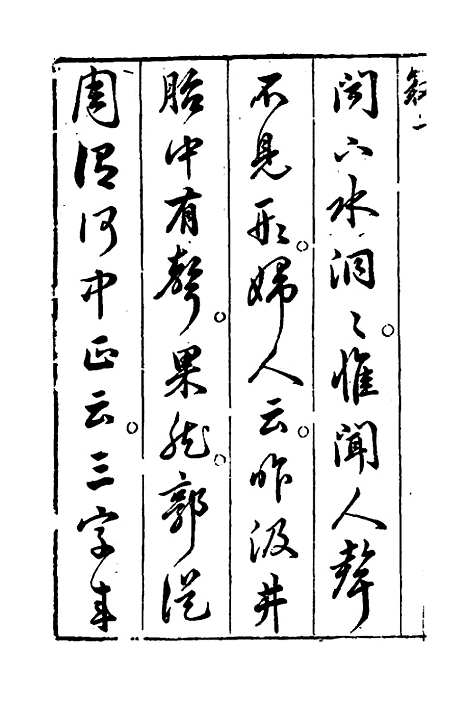 叙一
下水洞〻。惟聞人聲
不見形。婦人云。昨汲井
胎中有聲。果然。郭從
周謂何中正云。三字來